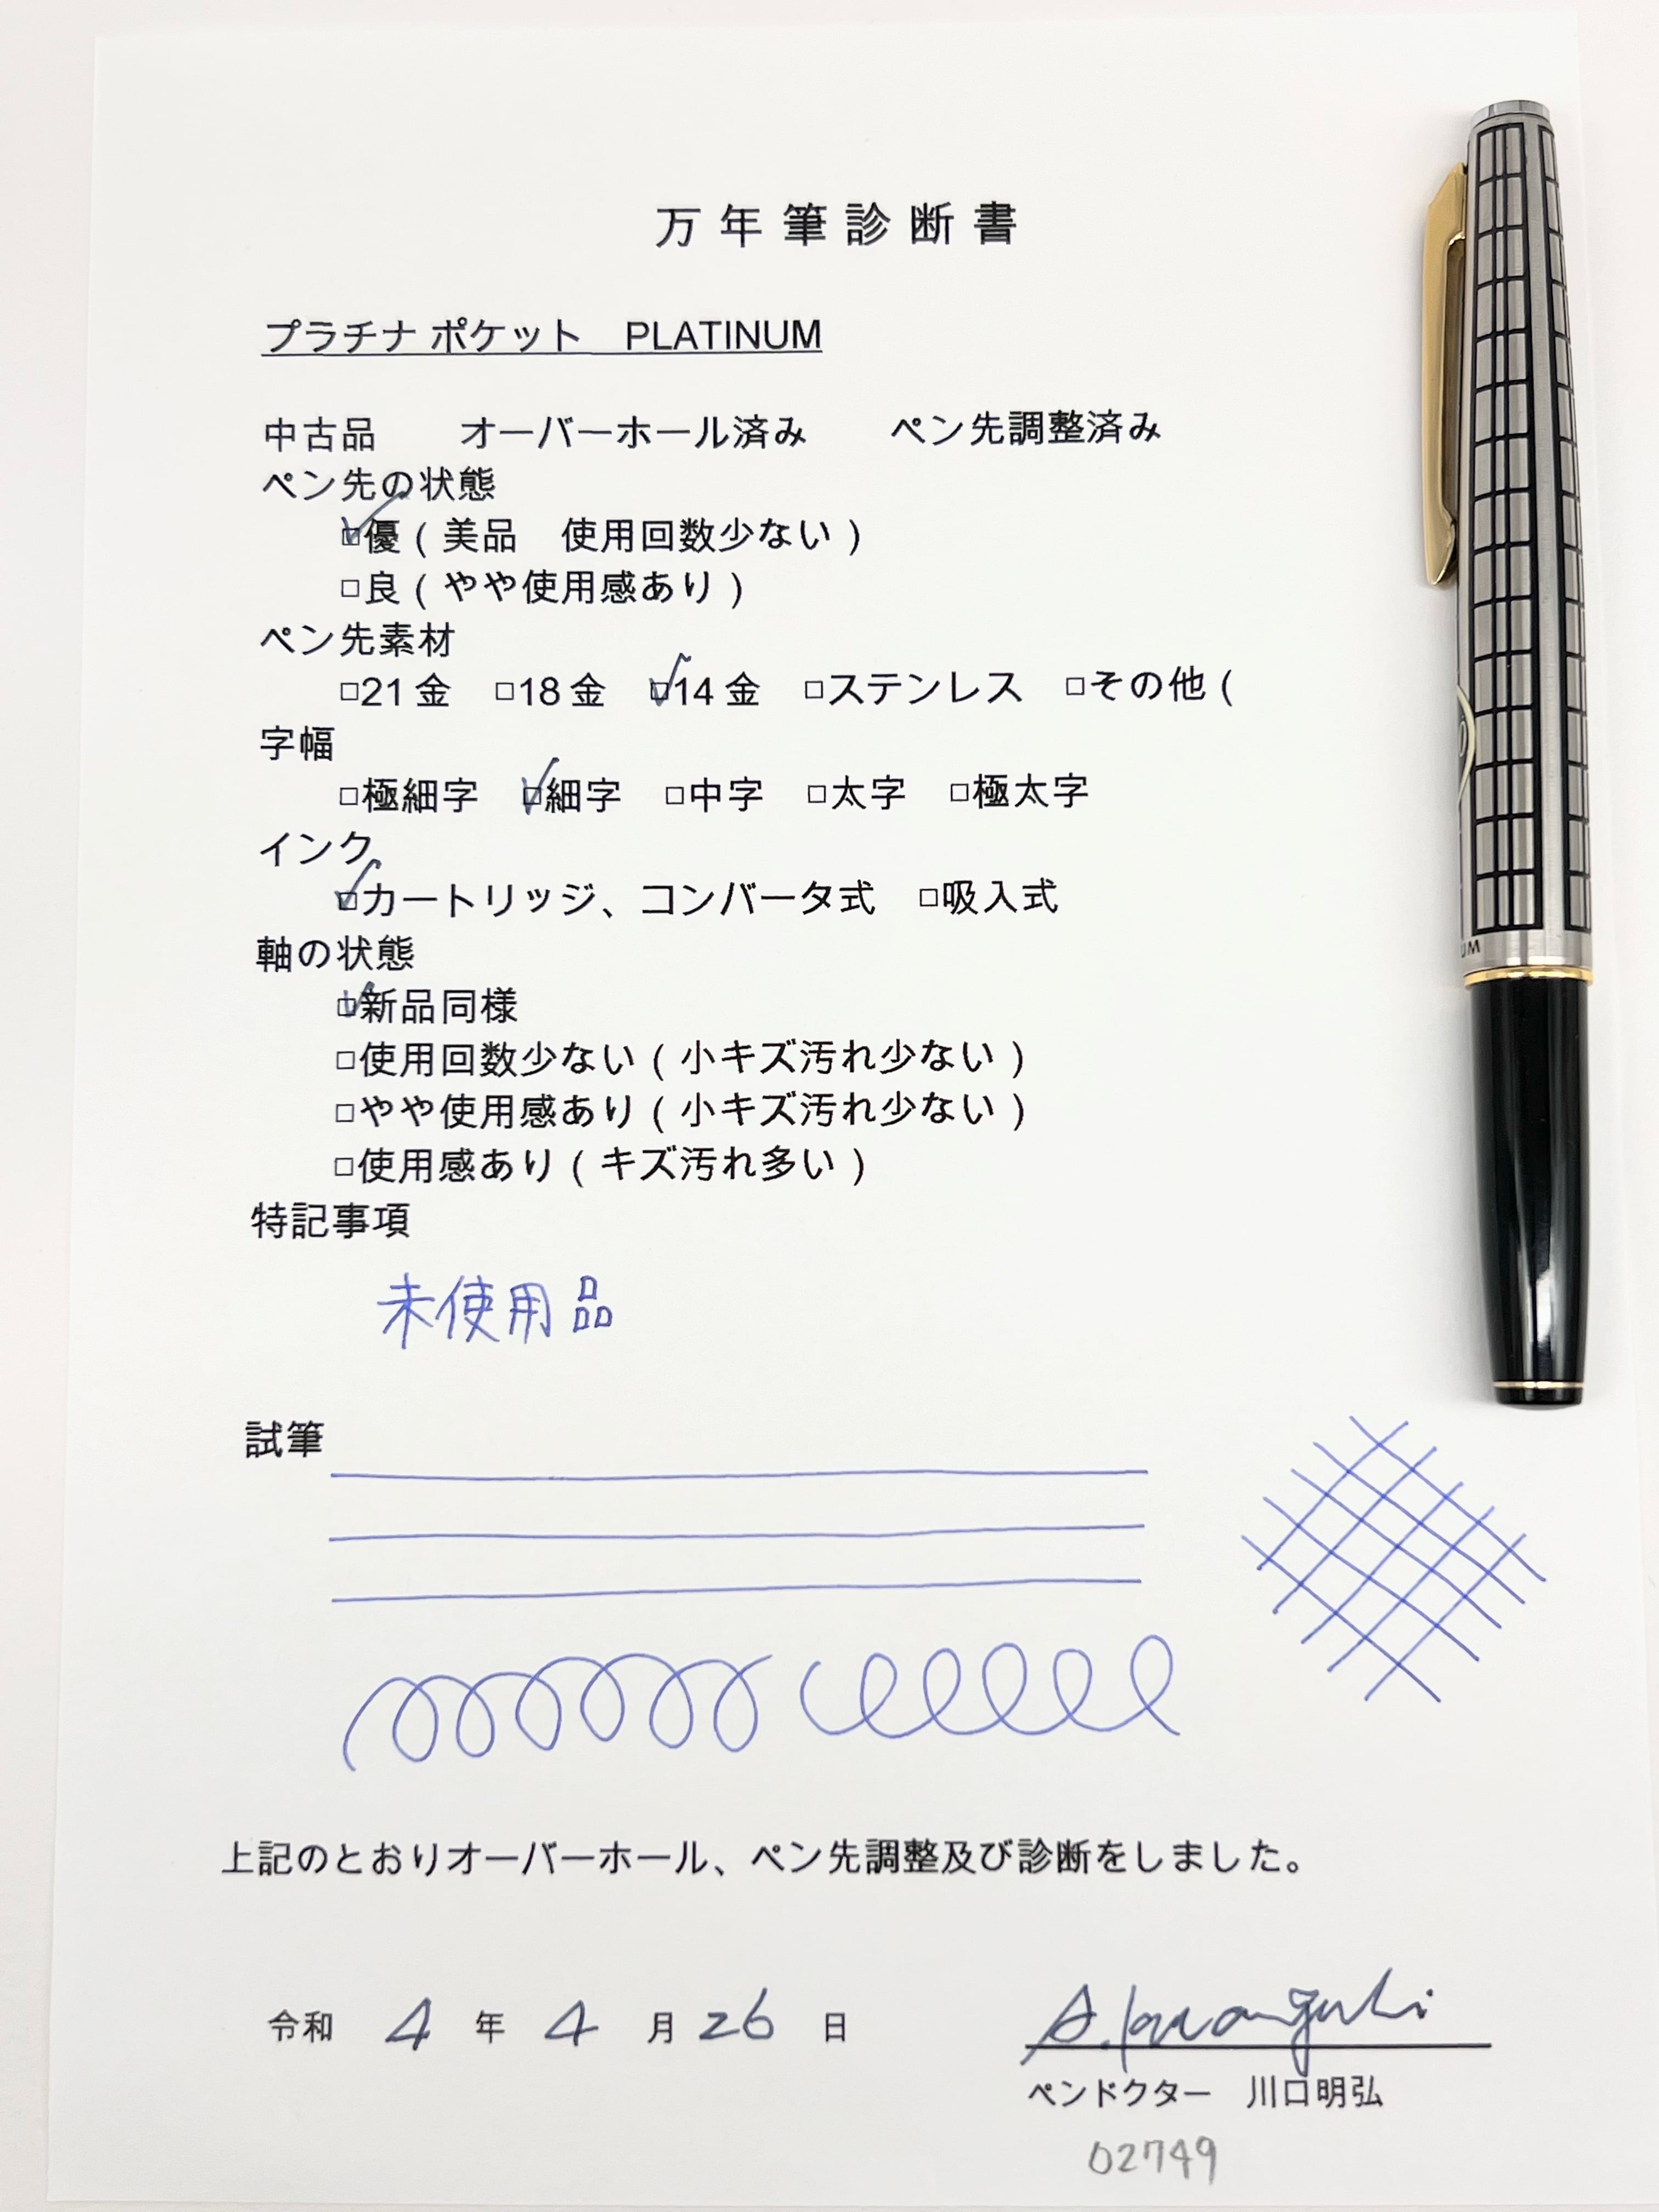 万年筆診断書
プラチナ ポケット　PLATINUM
中古品　　オーバーホール済み　　ペン先調整済み
ペン先の状態
☑優（美品　使用回数少ない）
□良（やや使用感あり）
ペン先素材
□21金　□18金　☑14金　□ステンレス　□その他（
字幅
□極細字　☑細字　□中字　□太字　□極太字
インク
☑カートリッジ、コンバータ式　□吸入式
軸の状態
☑新品同様
□使用回数少ない（小キズ汚れ少ない）
□やや使用感あり（小キズ汚れ少ない）
□使用感あり（キズ汚れ多い）
特記事項
未使用品
試筆
上記のとおりオーバーホール、ペン先調整及び診断をしました。
令和　4　年　4　月　26　日
A.Kawaguchi
ペンドクター　川口明弘
02749
UM